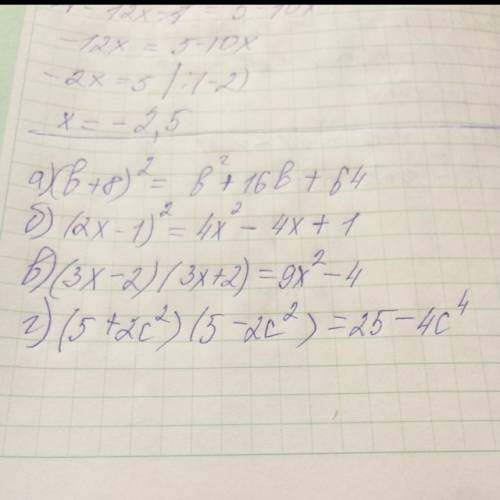 - 12x = 5 - 10x
- 2x = 5 | :(-2)
x = - 2,5
а) (b + 8)² = b² + 16b + 64
б) (2x - 1)² = 4x² - 4x + 1
в) (3x - 2) (3x + 2) = 9x² - 4
г) (5 + 2c²) (5 - 2c²) = 25 - 4c⁴